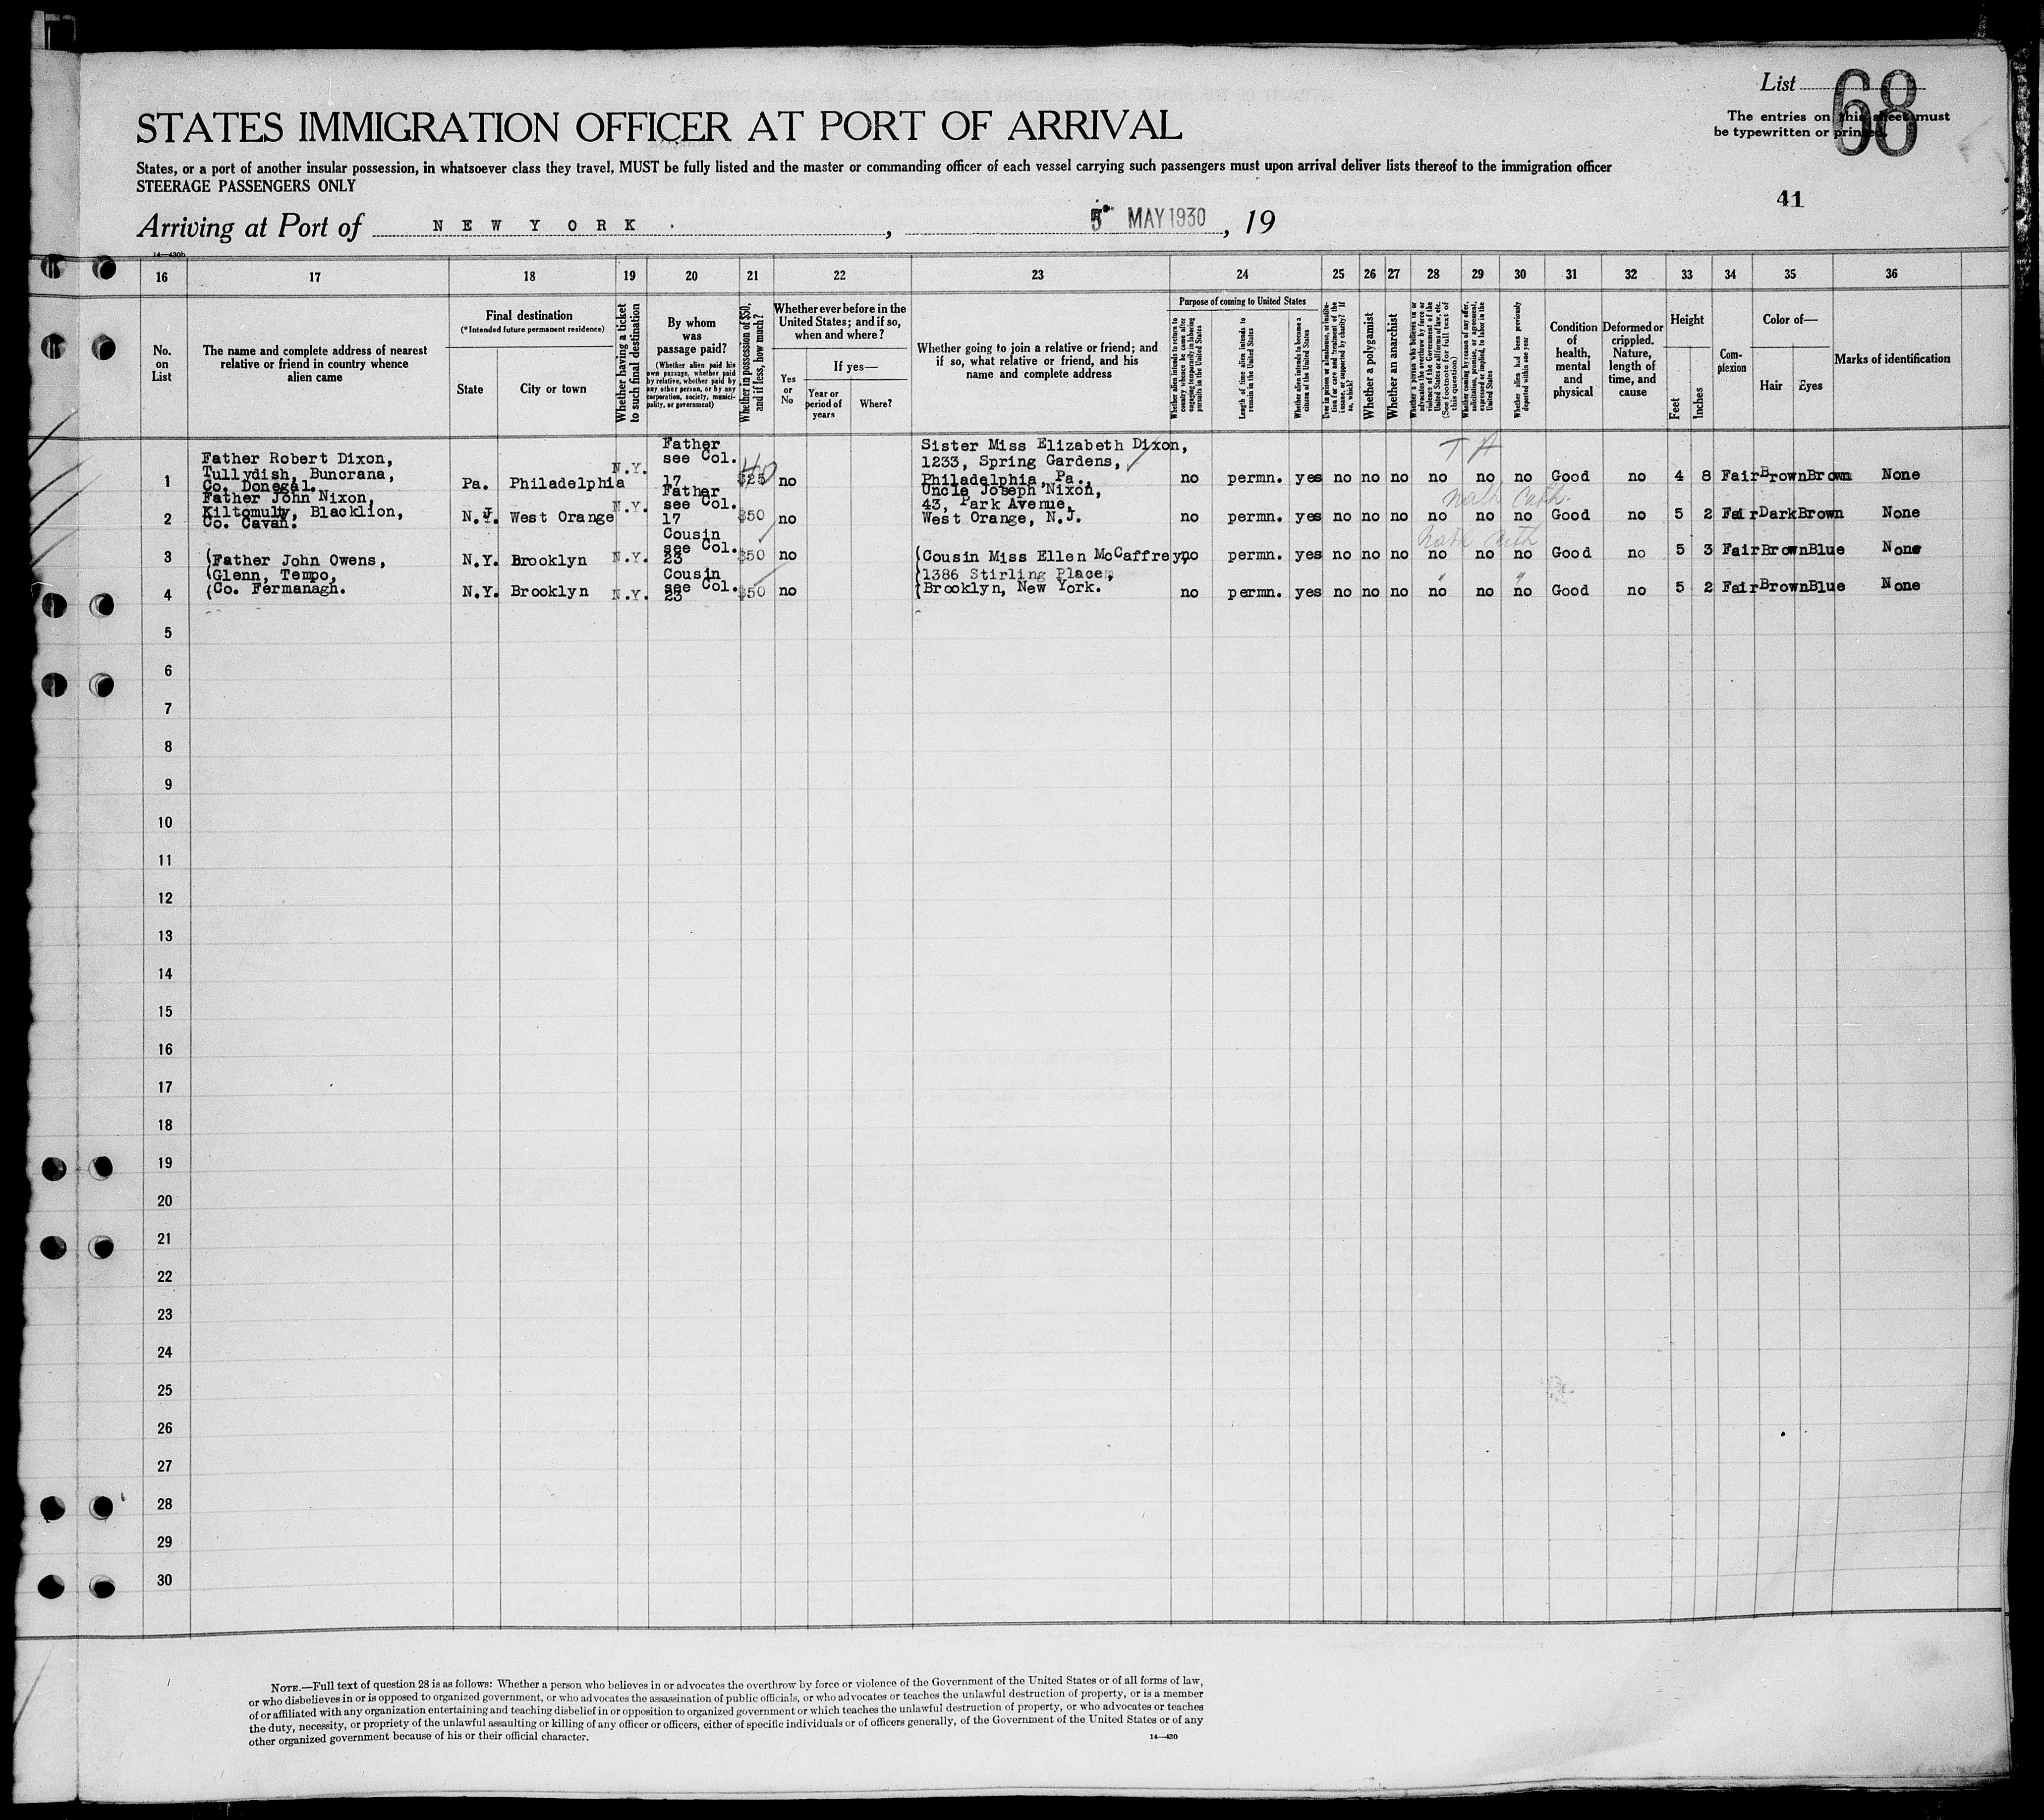 List 68
The entries on this sheet must
be typewritten or printed.
STATES IMMIGRATION OFFICER AT PORT OF ARRIVAL
States, or a port of another insular possession, in whatsoever class they travel, MUST be fully listed and the master or commanding officer of each vessel carrying such passengers must upon arrival deliver lists thereof to the immigration officer
STEERAGE PASSENGERS ONLY
41
Arriving at Port of NEW YORK. , 5 MAY 1930, 19
14—430b
16 17 18 19 20 21 22 23 24 25 26 27 28 29 30 31 32 33 34 35 36
No. on List
The name and complete address of nearest
relative or friend in country whence
alien came
Final destination
(*Intended future permanent residence)
State
City or town
Whether having a ticket
to such final destination
By whom
was
passage paid?
(Whether alien paid his
own passage, whether paid
by relative, whether paid by
any other person, or by any
corporation, society, munici-
pality, or government)
Whether in possession of $50,
and if less, how much?
Whether ever before in the
United States; and if so,
when and where?
Yes
or
No
If yes—
Year or
period of
years
Where?
Whether going to join a relative or friend; and
if so, what relative or friend, and his
name and complete address
Purpose of coming to United States
Whether alien intends to return to
country whence he came after
engaging temporarily in laboring
pursuits in the United States
Length of time alien intends to
remain in the United States
Whether alien intends to become a
citizen of the United States
Ever in prison or almshouse, or institu-
tion for care and treatment of the
insane, or supported by charity? If
so, which?
Whether a polygamist
Whether an anarchist
Whether a person who believes in or
advocates the overthrow by force or
violence of the Government of the
United States or all forms of law, etc.
(See footnote for full text of
this question)
Whether coming by reason of any offer,
solicitation, promise, or agreement,
expressed or implied, to labor in the
United States
Whether alien had been previously
deported within one year
Condition
of
health,
mental
and
physical
Deformed or
crippled.
Nature,
length of
time, and
cause
Height
Feet
Inches
Com-
plexion
Color of—
Hair
Eyes
Marks of identification
1 Father Robert Dixon,
Tullydish, Buncrana,
Co. Donegal.
Pa. Philadelphia N.Y. Father
see Col.
17 $25 40 no
Sister Miss Elizabeth Dixon,
1233, Spring Gardens,
Philadelphia, Pa.
T A
no permn. yes no no no no no no Good no 4 8 Fair Brown Brown None
2 Father John Nixon,
Kiltomulty, Blacklion,
Co. Cavan.
N.J. West Orange N.Y. Father
see Col.
17 $50 no
Uncle Joseph Nixon,
43, Park Avenue,
West Orange, N.J.
no permn. yes no no no no no no Good no 5 2 Fair Dark Brown None
3 (Father John Owens,
N.Y. Brooklyn N.Y. Cousin
see Col.
23 $50 no
(Cousin Miss Ellen McCaffrey,
no permn. yes no no no no no no Good no 5 3 Fair Brown Blue None
(Glenn, Tempo,
(1386 Stirling Place,
4 (Co. Fermanagh.
N.Y. Brooklyn N.Y. Cousin
see Col.
23 $50 no
(Brooklyn, New York.
no permn. yes no no no no no no Good no 5 2 Fair Brown Blue None
5
6
7
8
9
10
11
12
13
14
15
16
17
18
19
20
21
22
23
24
25
26
27
28
29
30
NOTE.—Full text of question 28 is as follows: Whether a person who believes in or advocates the overthrow by force or violence of the Government of the United States or of all forms of law,
or who disbelieves in or is opposed to organized government, or who advocates the assassination of public officials, or who advocates or teaches the unlawful destruction of property, or is a member
of or affiliated with any organization entertaining and teaching disbelief in or opposition to organized government or which teaches the unlawful destruction of property, or who advocates or teaches
the duty, necessity, or propriety of the unlawful assaulting or killing of any officer or officers, either of specific individuals or of officers generally, of the Government of the United States or of any
other organized government because of his or their official character.
14—430